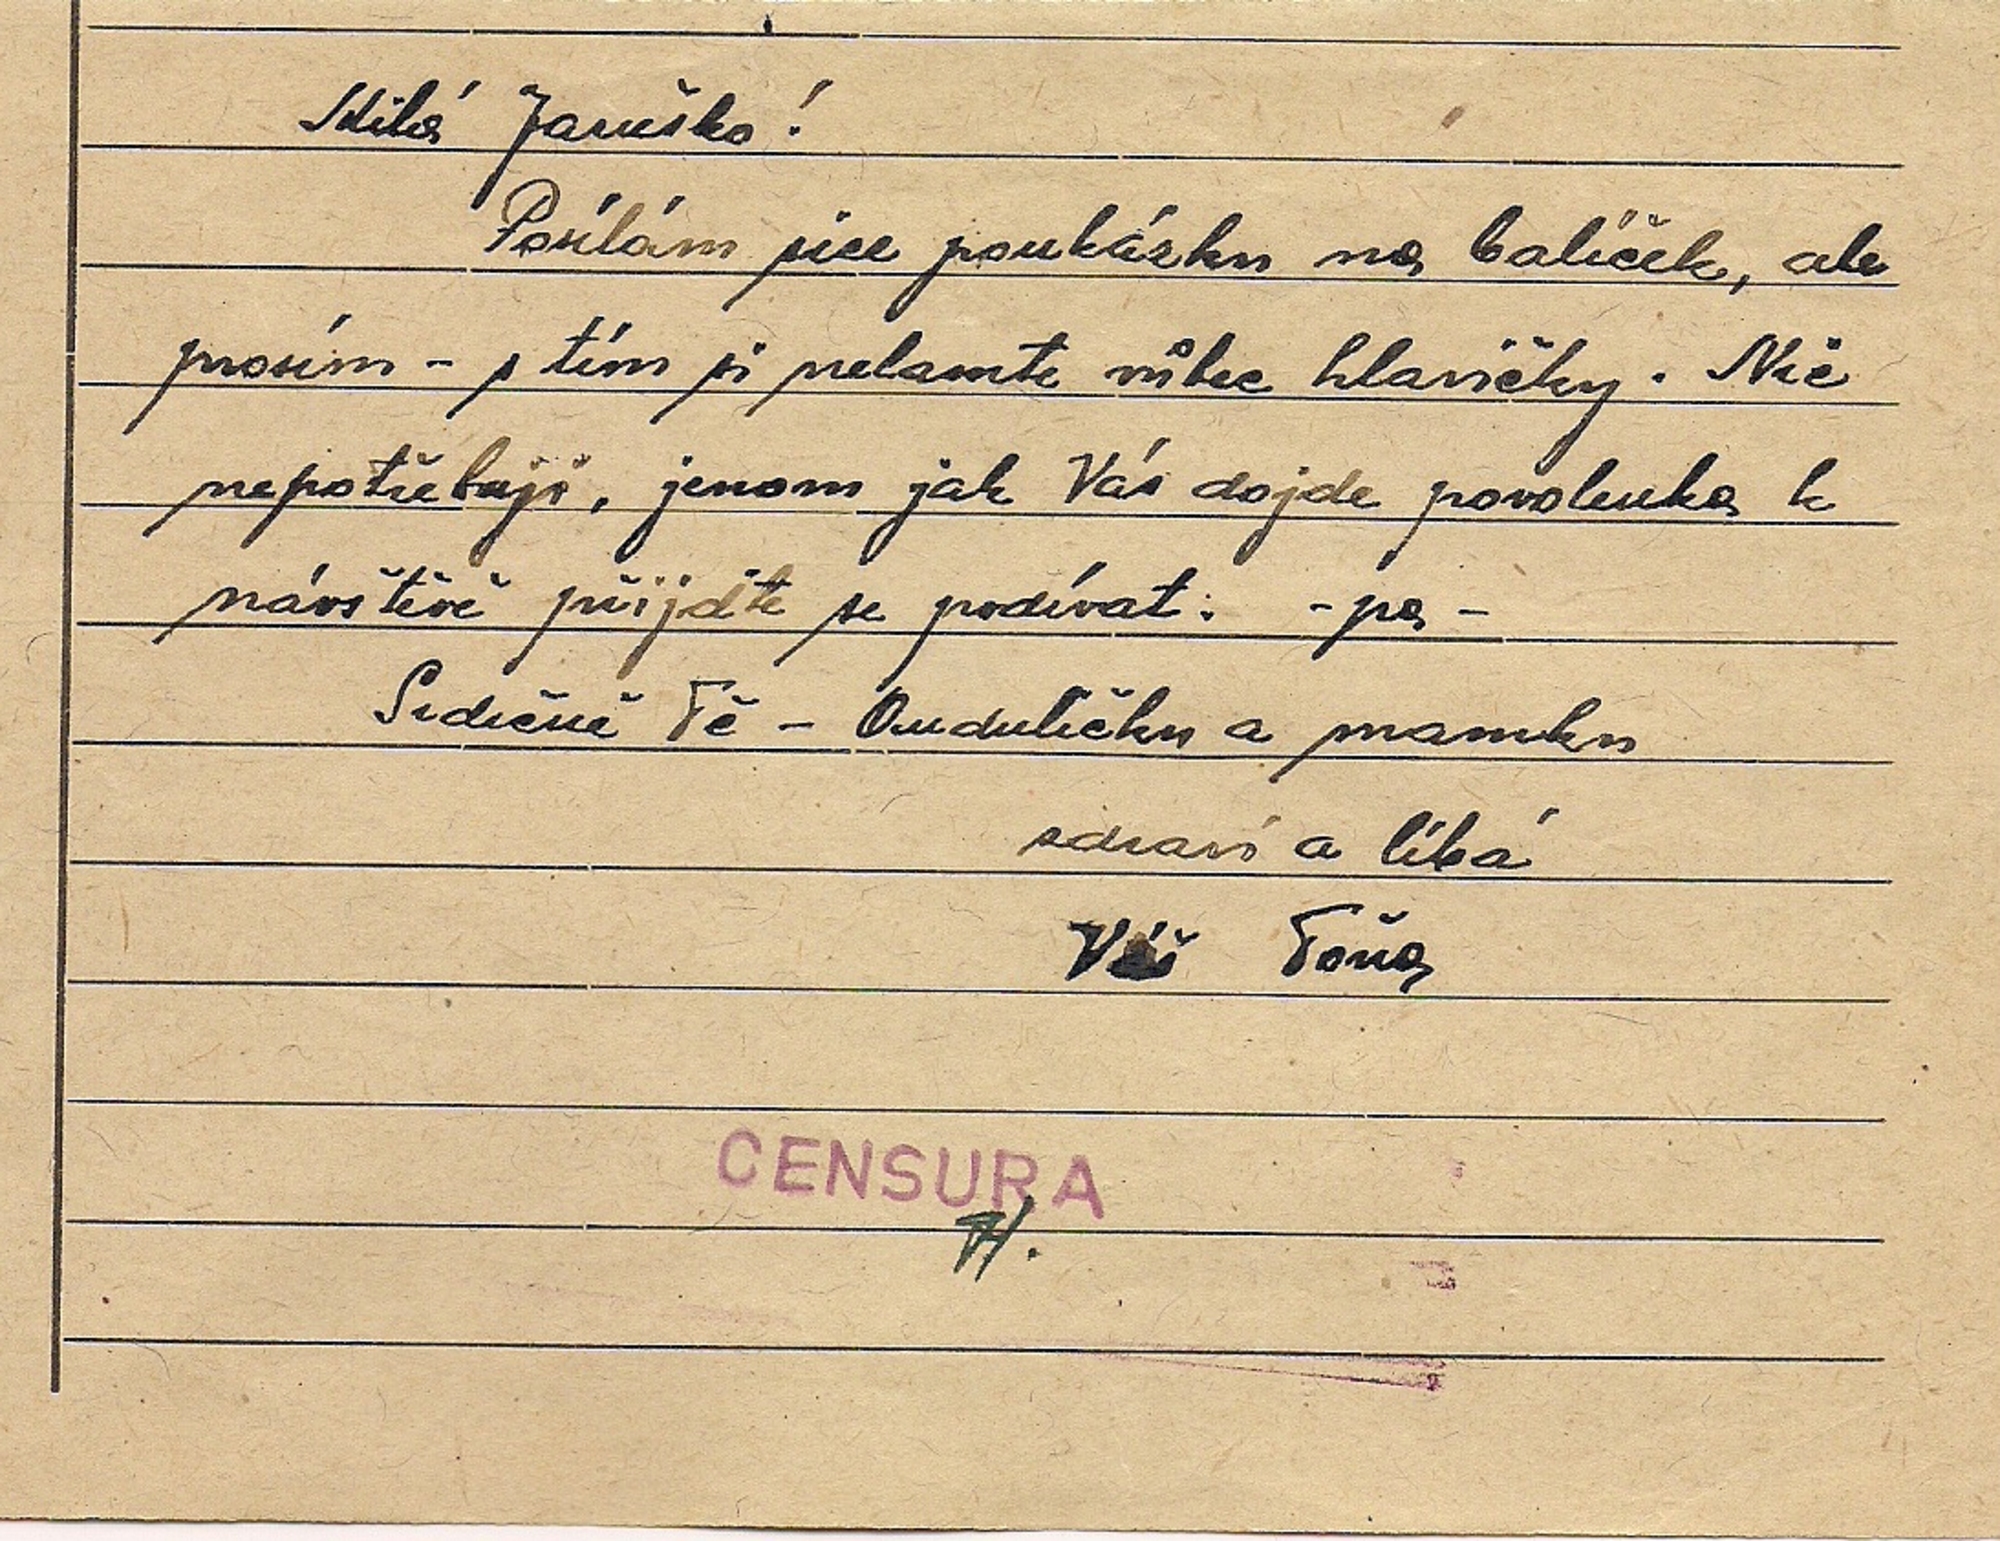 Milá Jaruško!
Posílám sice poukázku na balíček, ale
prosím - s tím si nelamte vůbec hlavičky. Nic
nepotřebuji, jenom jak Vás dojde povolenka k
návštěvě přijďte se podívat. - pa -
Srdečně Tě - Onduličku a mamku
zdraví a líbá
Váš Toňa
CENSURA
H.